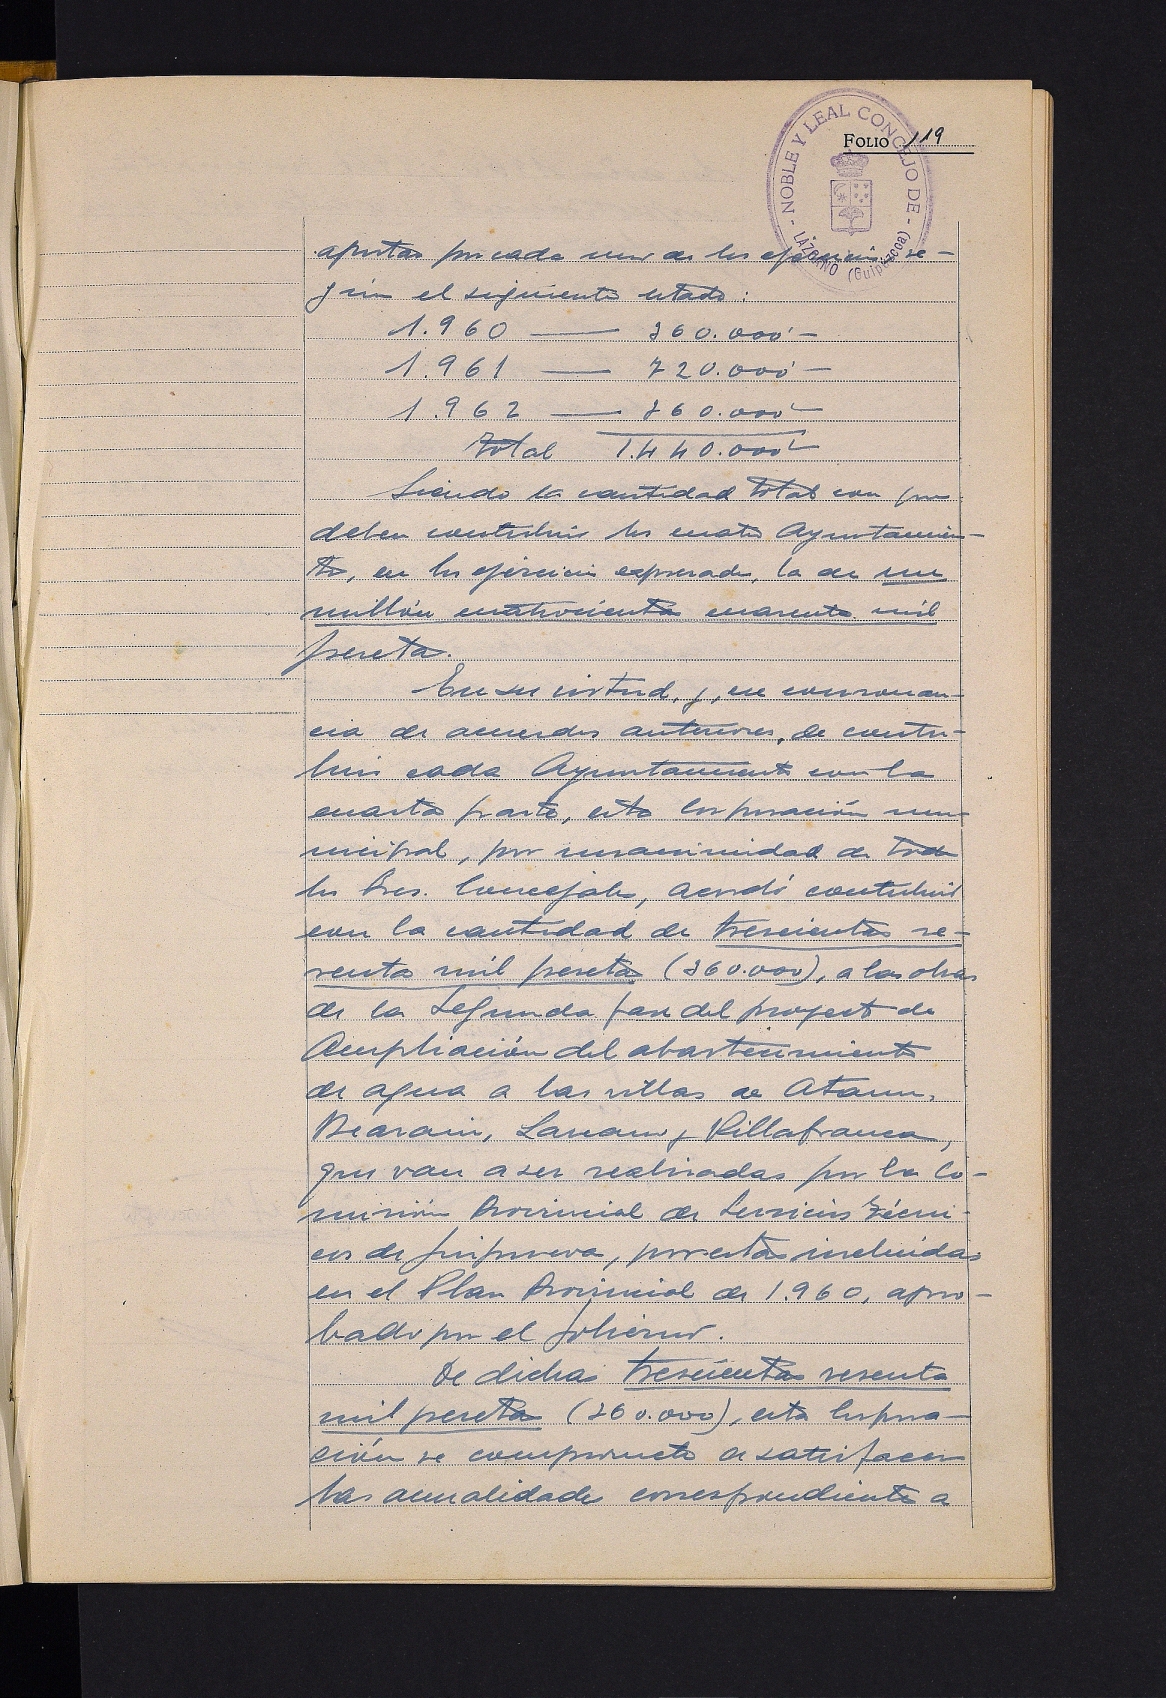 NOBLE Y LEAL CONCEJO DE
LAZCANO (Guipúzcoa)
FOLIO 119
aportar por cada uno de los ejercicios se-
gún el siguiente estado:
1.960 — 360.000'—
1.961 — 720.000'—
1.962 — 360.000'—
Total 1.440.000'—
Siendo la cantidad total con que
deben contribuir los cuatro Ayuntamien-
tos, en los ejercicios expresados, la de un
millón cuatrocientas cuarenta mil
pesetas.
En su virtud, y, en consonan-
cia de acuerdos anteriores, de contri-
buir cada Ayuntamiento con la
cuarta parte, esta Corporación mu-
nicipal, por unanimidad de todos
los Sres. Concejales, acordó contribuir
con la cantidad de trescientas se-
senta mil pesetas (360.000), a las obras
de la Segunda fase del proyecto de
Ampliación del abastecimiento
de agua a las villas de Ataun,
Beasain, Lazcano y Villafranca,
que van a ser realizadas por la Co-
misión Provincial de Servicios Técni-
cos de Guipúzcoa, por estar incluídas
en el Plan Provincial de 1.960, apro-
bado por el Gobierno.
De dichas trescientas sesenta
mil pesetas (360.000), esta Corpora-
ción se compromete a satisfacer
las anualidades correspondientes a